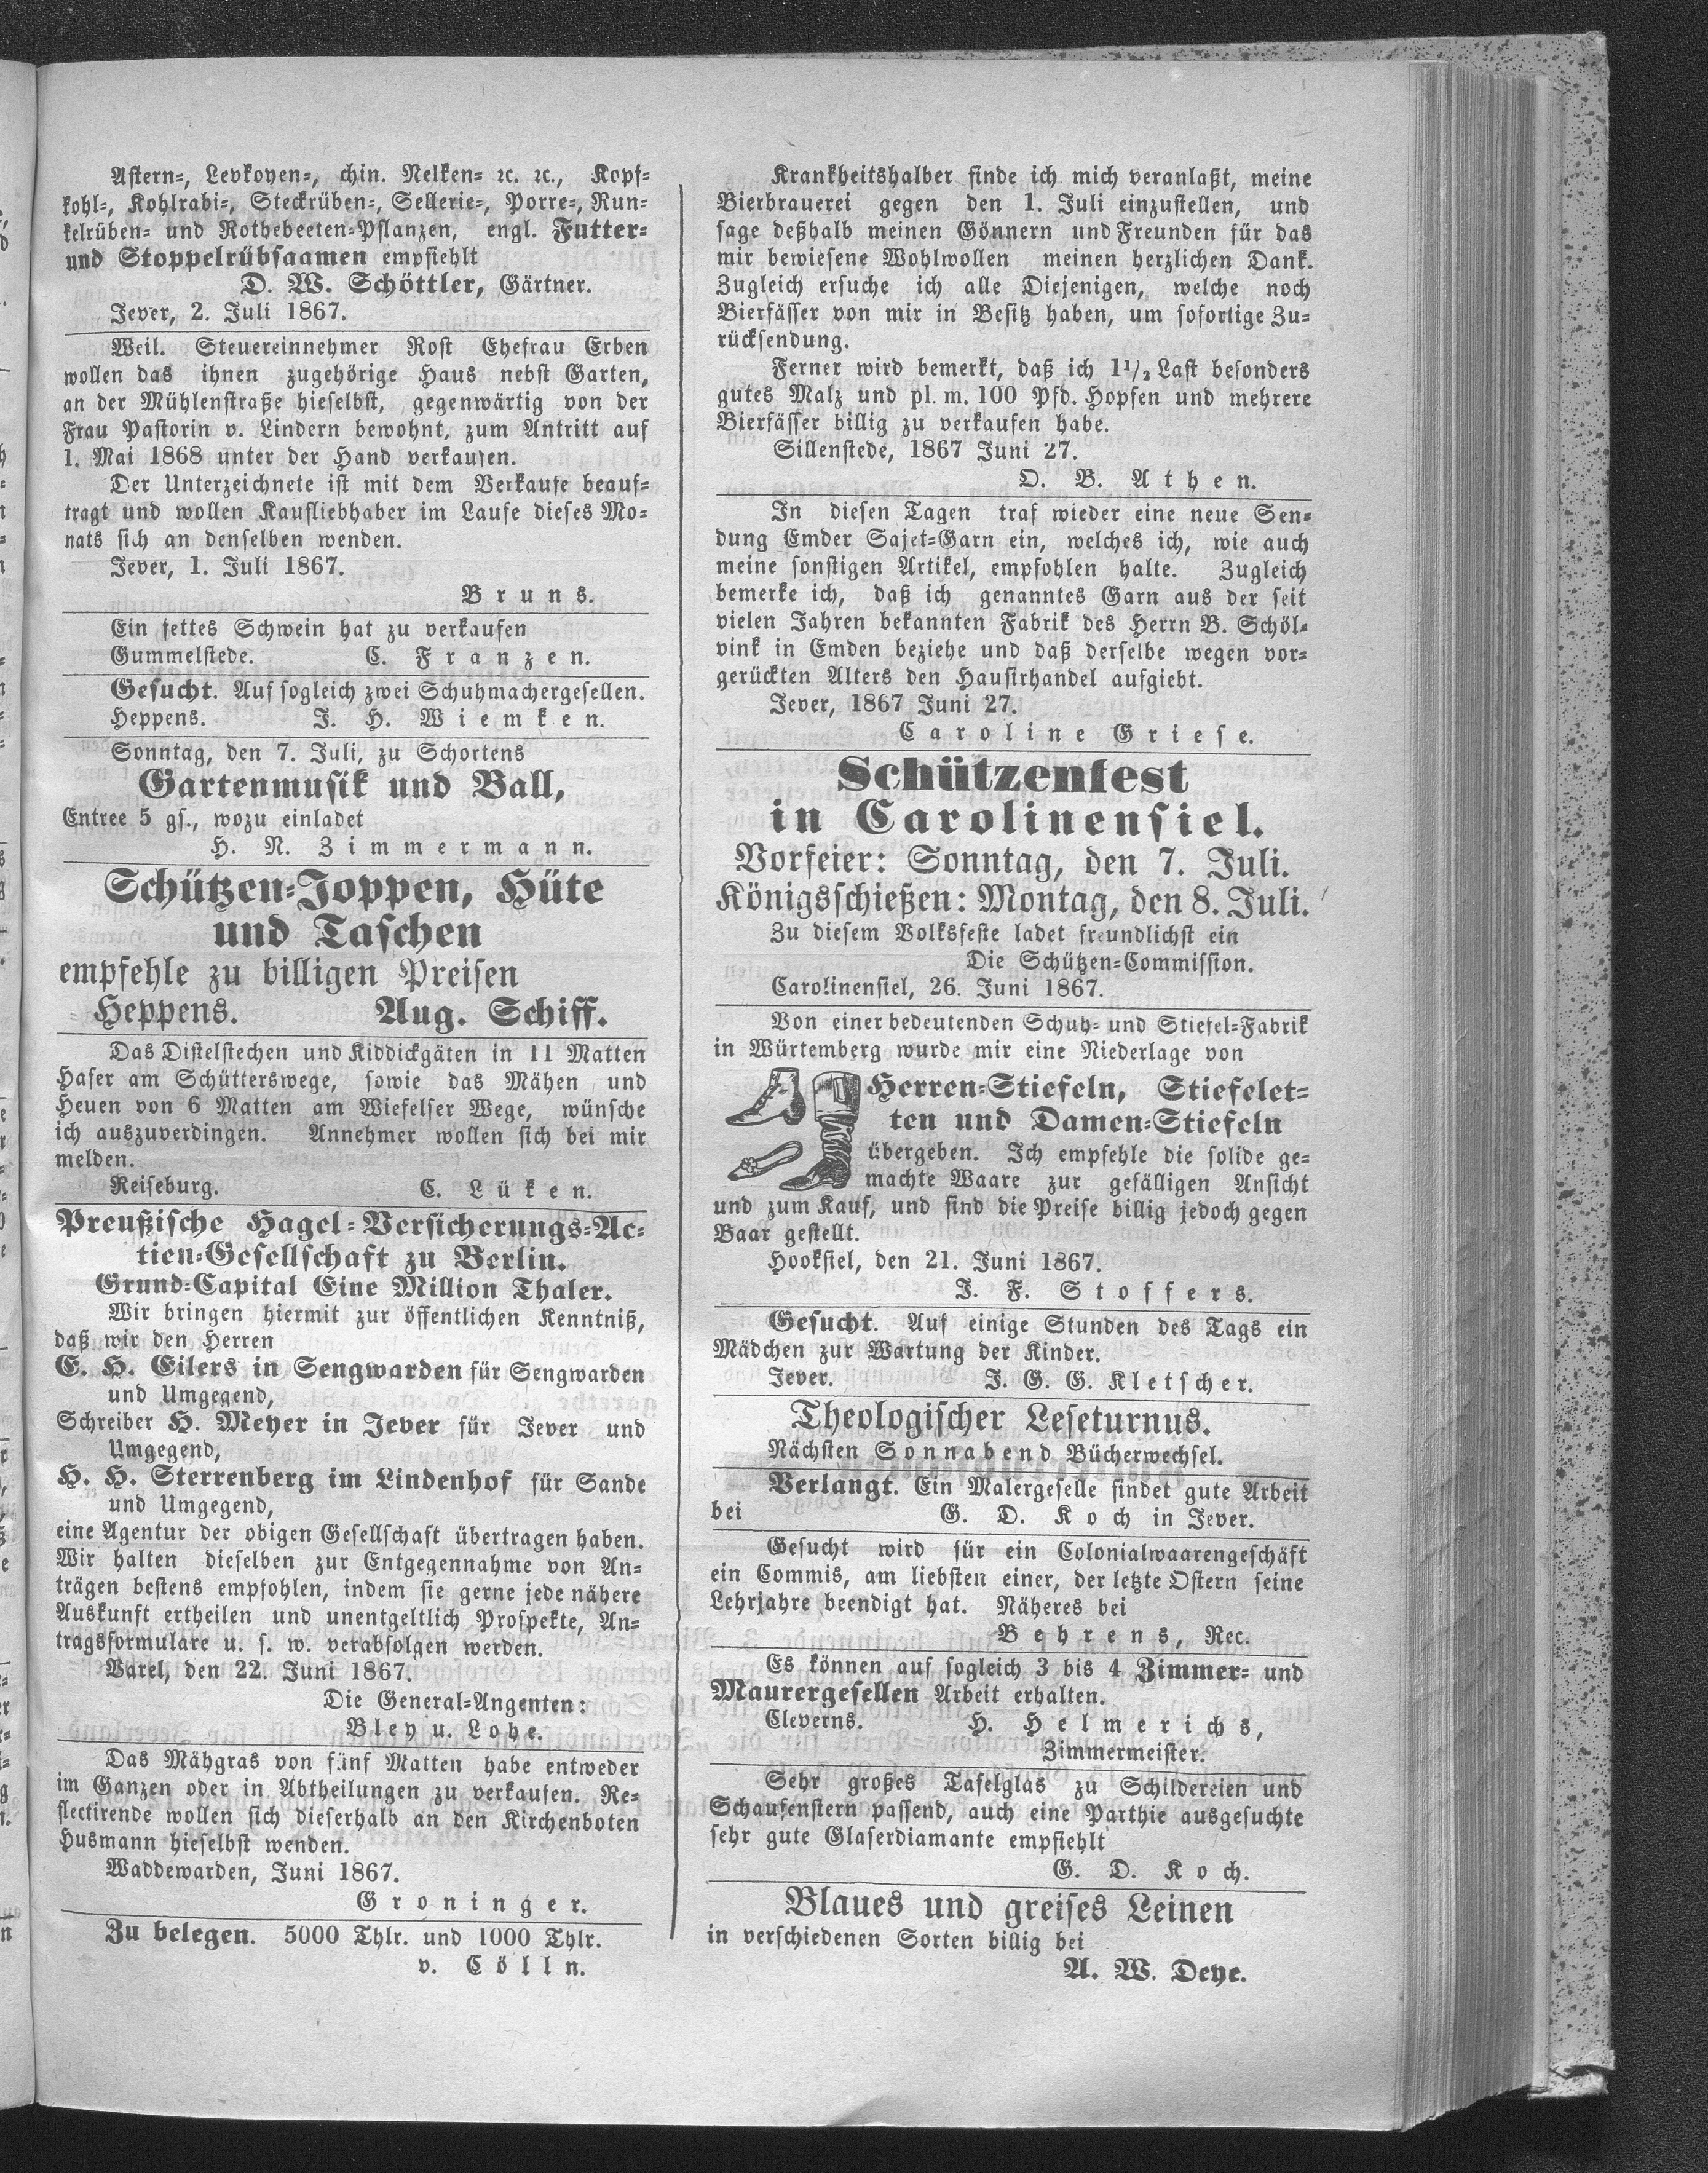 Astern-, Levkoyen-, chin. Nelken- ꝛc. ꝛc., Kopf-
kohl-, Kohlrabi-, Steckrüben-, Sellerie-, Porre-, Run-
kelrüben- und Rothebeeten-Pflanzen, engl. Futter-
und Stoppelrübsaamen empfiehlt
D. W. Schöttler, Gärtner.
Jever, 2. Juli 1867.
Weil. Steuereinnehmer Rost Ehefrau Erben
wollen das ihnen zugehörige Haus nebst Garten,
an der Mühlenstraße hieselbst, gegenwärtig von der
Frau Pastorin v. Lindern bewohnt, zum Antritt auf
1. Mai 1868 unter der Hand verkaufen.
Der Unterzeichnete ist mit dem Verkaufe beauf-
tragt und wollen Kaufliebhaber im Laufe dieses Mo-
nats sich an denselben wenden.
Jever, 1. Juli 1867.
Bruns.
Ein fettes Schwein hat zu verkaufen
Gummelstede. C. Franzen.
Gesucht. Auf sogleich zwei Schuhmachergesellen.
Heppens. J. H. Wiemken.
Sonntag, den 7. Juli, zu Schortens
Gartenmusik und Ball,
Entree 5 gs., wozu einladet
H. N. Zimmermann.
Schützen-Joppen, Hüte
und Taschen
empfehle zu billigen Preisen
Heppens. Aug. Schiff.
Das Distelstechen und Kiddickgäten in 11 Matten
Hafer am Schütterswege, sowie das Mähen und
Heuen von 6 Matten am Wiefelser Wege, wünsche
ich auszuverdingen. Annehmer wollen sich bei mir
melden.
Reiseburg. C. Lüken.
Preußische Hagel-Versicherungs-Ac-
tien-Gesellschaft zu Berlin.
Grund-Capital Eine Million Thaler.
Wir bringen hiermit zur öffentlichen Kenntniß,
daß wir den Herren
E. H. Eilers in Sengwarden für Sengwarden
und Umgegend,
Schreiber H. Meyer in Jever für Jever und
Umgegend,
H. H. Sterrenberg im Lindenhof für Sande
und Umgegend,
eine Agentur der obigen Gesellschaft übertragen haben.
Wir halten dieselben zur Entgegennahme von An-
trägen bestens empfohlen, indem sie gerne jede nähere
Auskunft ertheilen und unentgeltlich Prospekte, An-
tragsformulare u. s. w. verabfolgen werden.
Varel, den 22. Juni 1867.
Die General-Angenten:
Bley u. Lohe.
Das Mähgras von fünf Matten habe entweder
im Ganzen oder in Abtheilungen zu verkaufen. Re-
flectirende wollen sich dieserhalb an den Kirchenboten
Husmann hieselbst wenden.
Waddewarden, Juni 1867.
Groninger.
Zu belegen. 5000 Thlr. und 1000 Thlr.
v. Cölln.
Krankheitshalber finde ich mich veranlaßt, meine
Bierbrauerei gegen den 1. Juli einzustellen, und
sage deßhalb meinen Gönnern und Freunden für das
mir bewiesene Wohlwollen meinen herzlichen Dank.
Zugleich ersuche ich alle Diejenigen, welche noch
Bierfässer von mir in Besitz haben, um sofortige Zu-
rücksendung.
Ferner wird bemerkt, daß ich 1 1/2 Last besonders
gutes Malz und pl. m. 100 Pfd. Hopfen und mehrere
Bierfässer billig zu verkaufen habe.
Sillenstede, 1867 Juni 27.
O. B. Athen.
In diesen Tagen traf wieder eine neue Sen-
dung Emder Sajet-Garn ein, welches ich, wie auch
meine sonstigen Artikel, empfohlen halte. Zugleich
bemerke ich, daß ich genanntes Garn aus der seit
vielen Jahren bekannten Fabrik des Herrn B. Schöl-
vink in Emden beziehe und daß derselbe wegen vor-
gerückten Alters den Hausirhandel aufgiebt.
Jever, 1867 Juni 27.
Caroline Griese.
Schützenfest
in Carolinensiel.
Vorfeier: Sonntag, den 7. Juli.
Königsschießen: Montag, den 8. Juli.
Zu diesem Volksfeste ladet freundlichst ein
Die Schützen-Commission.
Carolinensiel, 26. Juni 1867.
Von einer bedeutenden Schuh- und Stiefel-Fabrik
in Würtemberg wurde mir eine Niederlage von
Herren-Stiefeln, Stiefelet-
ten und Damen-Stiefeln
übergeben. Ich empfehle die solide ge-
machte Waare zur gefälligen Ansicht
und zum Kauf, und sind die Preise billig jedoch gegen
Baar gestellt.
Hooksiel, den 21. Juni 1867.
J. F. Stoffers.
Gesucht. Auf einige Stunden des Tags ein
Mädchen zur Wartung der Kinder.
Jever. J. G. G. Kletscher.
Theologischer Leseturnus.
Nächsten Sonnabend Bücherwechsel.
Verlangt. Ein Malergeselle findet gute Arbeit
bei G. D. Koch in Jever.
Gesucht wird für ein Colonialwaarengeschäft
ein Commis, am liebsten einer, der letzte Ostern seine
Lehrjahre beendigt hat. Näheres bei
Behrens, Rec.
Es können auf sogleich 3 bis 4 Zimmer- und
Maurergesellen Arbeit erhalten.
Cleverns. H. Helmerichs,
Zimmermeister.
Sehr großes Tafelglas zu Schildereien und
Schaufenstern passend, auch eine Parthie ausgesuchte
sehr gute Glaserdiamante empfiehlt
G. D. Koch.
Blaues und greises Leinen
in verschiedenen Sorten billig bei
A. W. Deye.